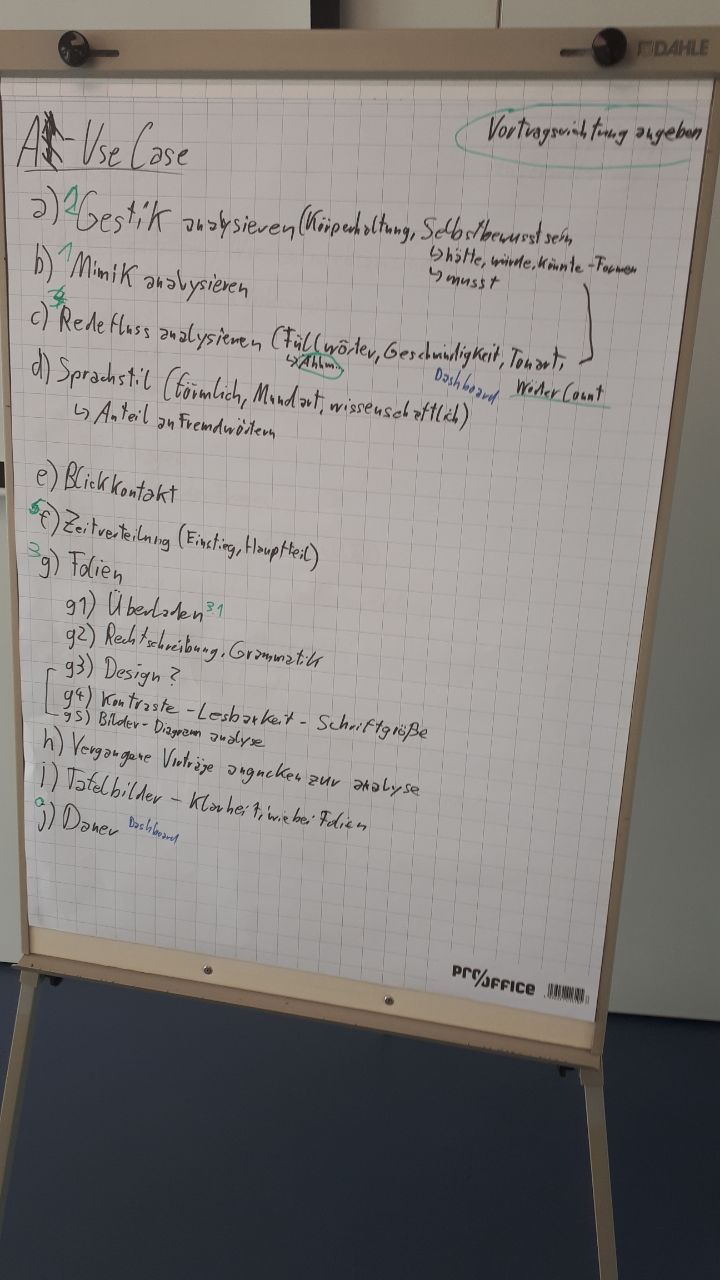 DAHLE
Vortragsrichtung angeben
Use Case
a) 2 Gestik analysieren (Körperhaltung, Selbstbewusstsein
↳ hätte, würde, könnte - Formen
↳ musst
b) 1 Mimik analysieren
c) Redefluss analysieren (Füllwörter, Geschwindigkeit, Tonart,
↳ Ähhm..
Dashboard Wörter Count
d) Sprachstil (förmlich, Mundart, wissenschaftlich)
↳ Anteil an Fremdwörtern
e) Blickkontakt
5 f) Zeitverteilung (Einstieg, Hauptteil)
3 g) Folien
g1) Überladen 3.1
g2) Rechtschreibung, Grammatik
g3) Design?
g4) Kontraste - Lesbarkeit - Schriftgröße
g5) Bilder - Diagramm analyse
h) Vergangene Vorträge angucken zur analyse
i) Tafelbilder - Klarheit, wie bei Folien
j) Dauer Dashboard
PRO/OFFICE